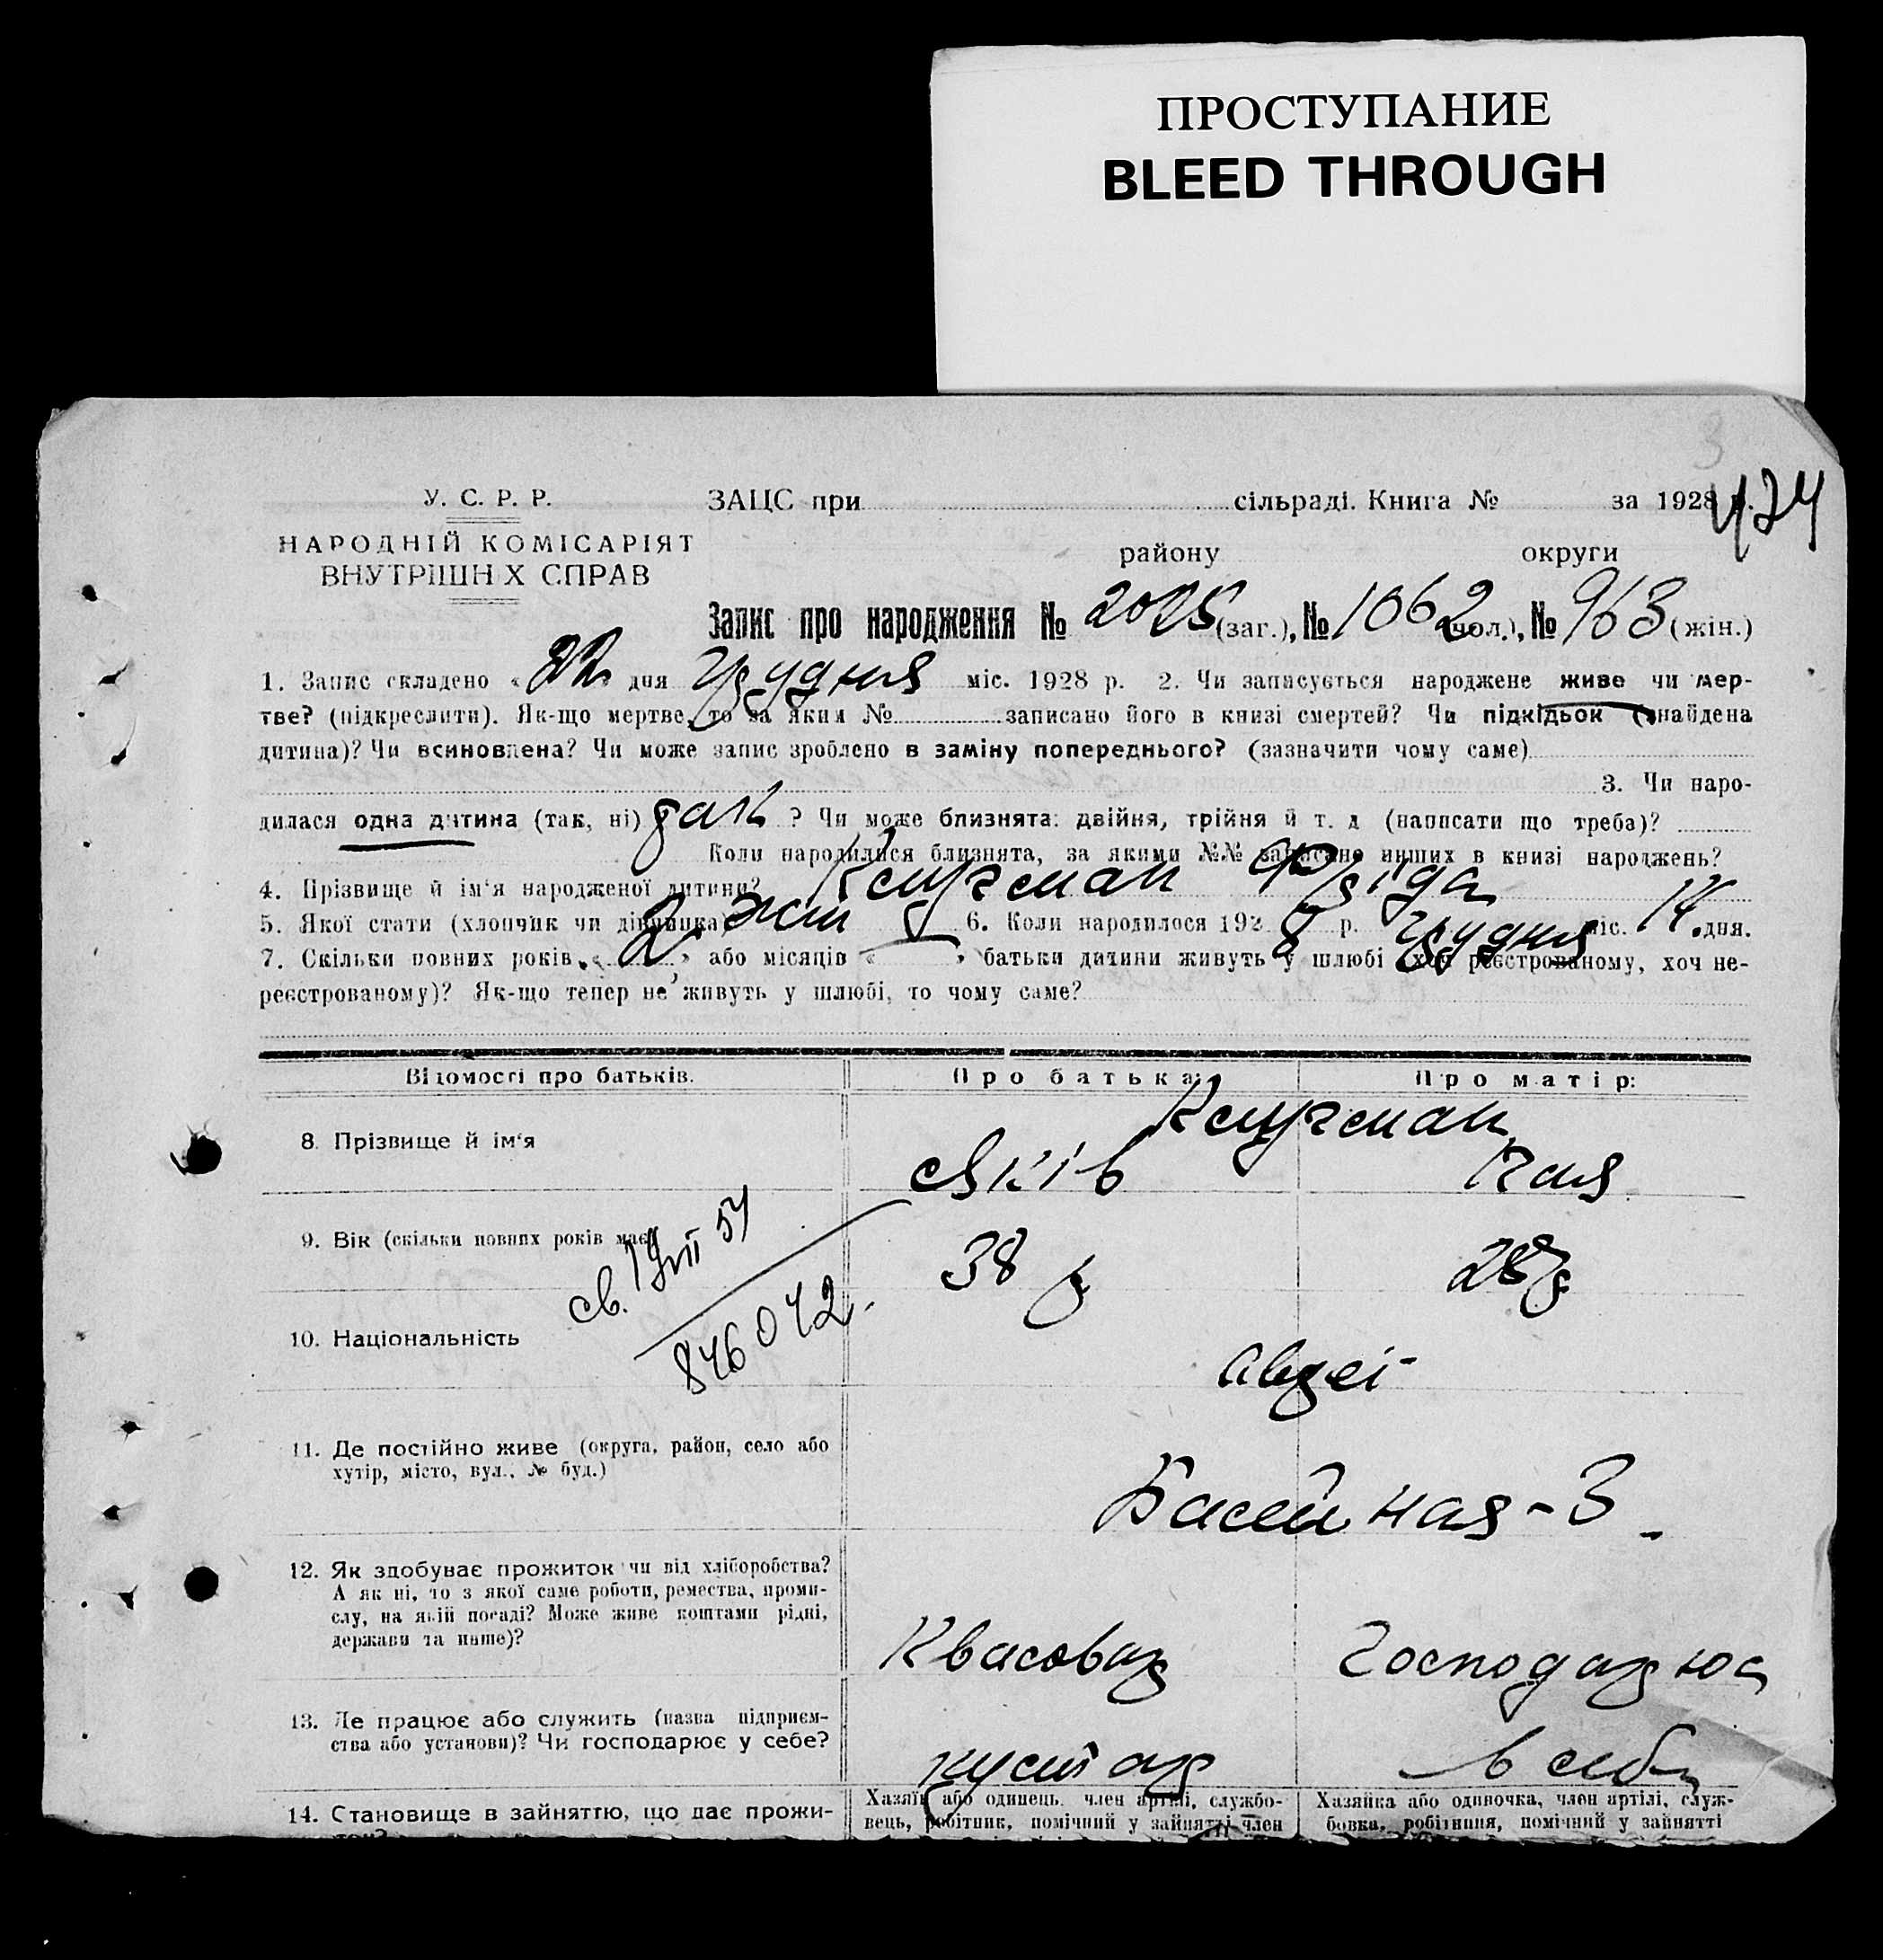 ПРОСТУПАНИЕ
BLEED THROUGH
3
424
У. С. Р. Р.
НАРОДНІЙ КОМІСАРІЯТ
ВНУТРІШНІХ СПРАВ
ЗАЦС при сільраді. Книга № за 1928 р.
району округи
Запис про народження № 2025 (заг.), № 1062 (чол.), № 963 (жін.)
1. Запис складено « 22 » дня Грудня міс. 1928 р. 2. Чи записується народжене живе чи мер-
тве? (підкреслити). Як-що мертве, то за яким № записано його в книзі смертей? Чи підкідьок (знайдена
дитина)? Чи всиновлена? Чи може запис зроблено в заміну попереднього? (зазначити чому саме)
3. Чи наро-
дилася одна дитина (так, ні) так ? Чи може близнята: двійня, трійня й т. д (написати що треба)?
Коли народилися близнята, за якими №№ записано инших в книзі народжень?
4. Прізвище й ім'я народженої дитини?
5. Якої стати (хлопчик чи дівчинка) жін 6. Коли народилося 1928 р. Грудня міс. 14 дня.
7. Скільки повних років « 2 » або місяців « — » батьки дитини живуть у шлюбі (хоч реєстрованому, хоч не-
реєстрованому)? Як-що тепер не живуть у шлюбі, то чому саме?
Відомості про батьків. Про батька: Про матір:
8. Прізвище й ім'я
Яків
9. Вік (скільки повних років має)
38 р 28 р
св. 19 VII 54
846042.
10. Національність
євреї
11. Де постійно живе (округа, район, село або
хутір, місто, вул., № буд.)
Басейная-3.
12. Як здобуває прожиток чи від хліборобства?
А як ні, то з якої саме роботи, ремества, проми-
слу, на якій посаді? Може живе коштами рідні,
держави та инше)?
Квасовар Господарює
13. Де працює або служить (назва підприєм-
ства або установи)? Чи господарює у себе?
кустар в себе
14. Становище в зайняттю, що дає прожи-
ток?
Хазяїн або одинець, член артілі, службо-
вець, робітник, помічний у зайнятті член
Хазяйка або одиночка, член артілі, служ-
бовка, робітниця, помічний у зайнятті